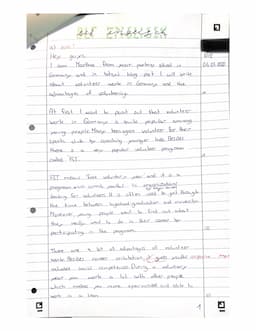 a)
Hey guys,
I am Martha from your partner school in
Germany and in today's blog post I will write
about volunteer work in Germany and the
advantages of volunteering.
At first I want to point out that volunteer
work in Germany is quite popular among
young people. Many teenagers volunteer for their
sports club for coaching younger kids. Besides
there is a very popular volunteer program
called FSJ.
FSJ means Free voluntary year and it is a
program with
for volunteers. It is often used to get through
the time between highschool graduation and
Moreover, young people want to find out what
they really want to do in their career by
participating in the program.
There are a lot of advantages of volunteer
work. Besides career orientation, it gives you
valuable social competences. During a voluntary
year you work a lot with other people
which makes you more open-minded and able to
work in a team.
1